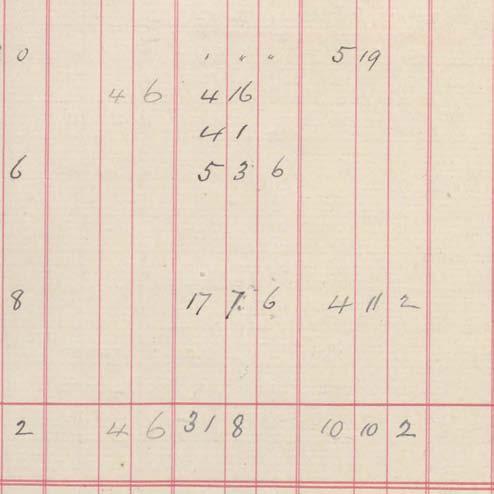 0 , " " 5 19
4 6 4 16
4 1
6 5 3 6
8 17 7 6 4 11 2
2 4 6 31 8 10 10 2